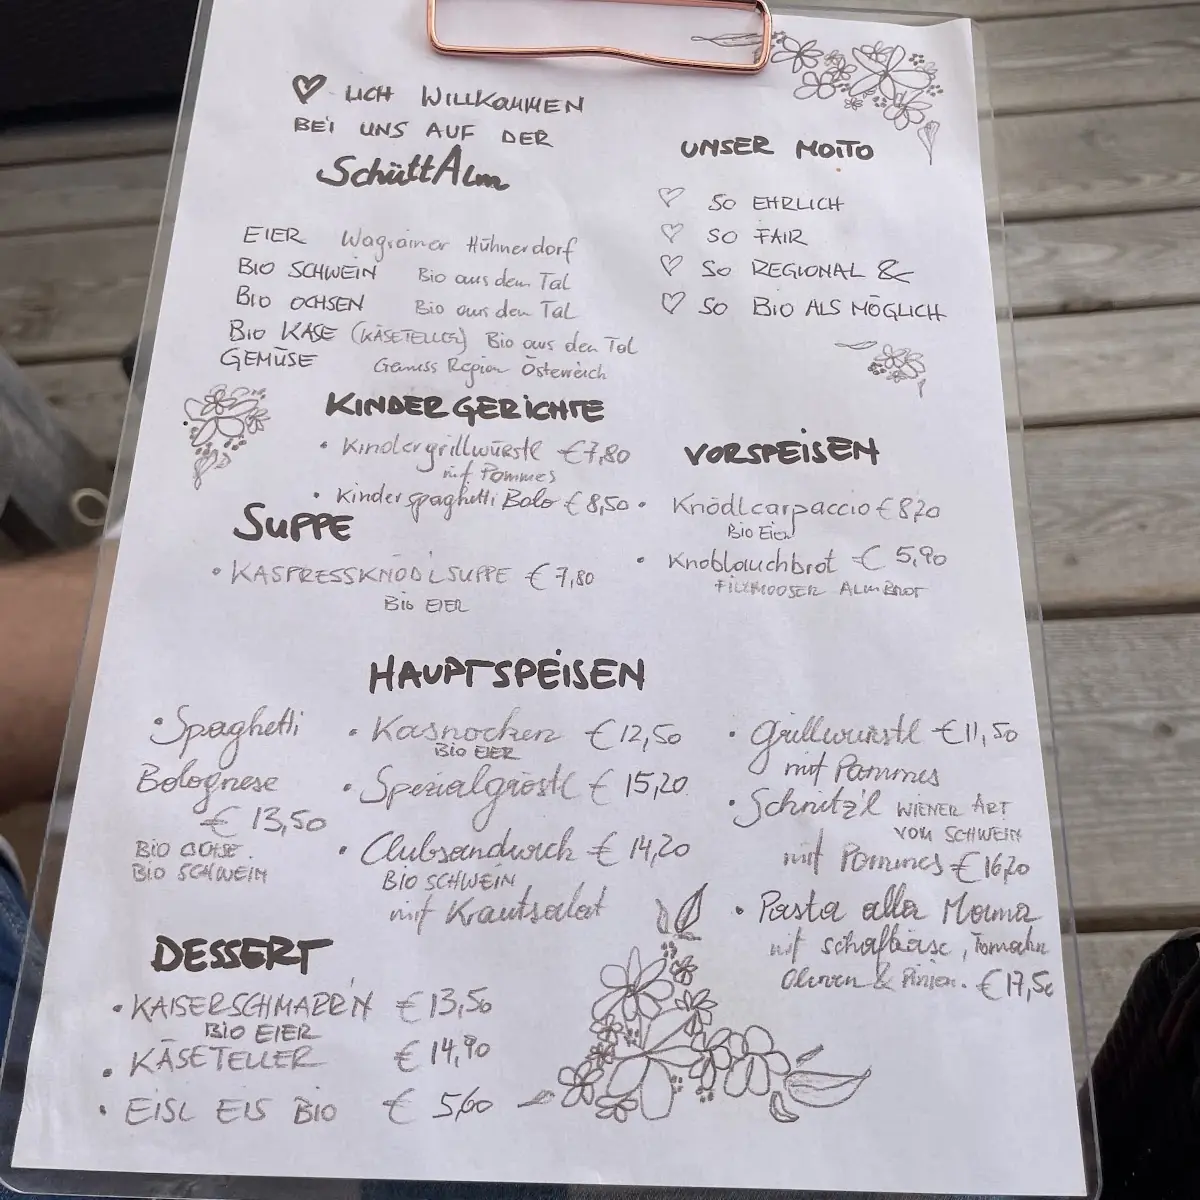 ♡ LICH WILLKOMMEN
BEI UNS AUF DER
SchüttAlm
UNSER MOTTO
♡ SO EHRLICH
♡ SO FAIR
♡ SO REGIONAL &
♡ SO BIO ALS MÖGLICH
EIER Wagrainer Hühnerdorf
BIO SCHWEIN Bio aus dem Tal
BIO OCHSEN Bio aus dem Tal
BIO KÄSE (KÄSETELLER) Bio aus dem Tal
GEMÜSE Genuss Region Österreich
KINDERGERICHTE
• Kindergrillwürstl €7,80
mit Pommes
• Kinderspaghetti Bolo €8,50
VORSPEISEN
• Knödlcarpaccio €8,20
Bio Eier
• Knoblauchbrot € 5,90
FILZMOOSER ALMBROT
SUPPE
• KASPRESSKNÖDLSUPPE €7,80
BIO EIER
HAUPTSPEISEN
• Spaghetti
Bolognese
€ 13,50
BIO OCHSE
BIO SCHWEIN
• Kasnocken €12,50
BIO EIER
• Spezialgröstl € 15,20
• Clubsandwich € 14,20
BIO SCHWEIN
mit Krautsalat
• Grillwürstl €11,50
mit Pommes
• Schnitz'l WIENER ART
VOM SCHWEIN
mit Pommes €16,20
• Pasta alla Mama
mit Schafkäse, Tomaten
Oliven & Pinien. €17,50
DESSERT
• KAISERSCHMARR'N €13,50
BIO EIER
• KÄSETELLER € 14,90
• EISL EIS BIO € 5,60